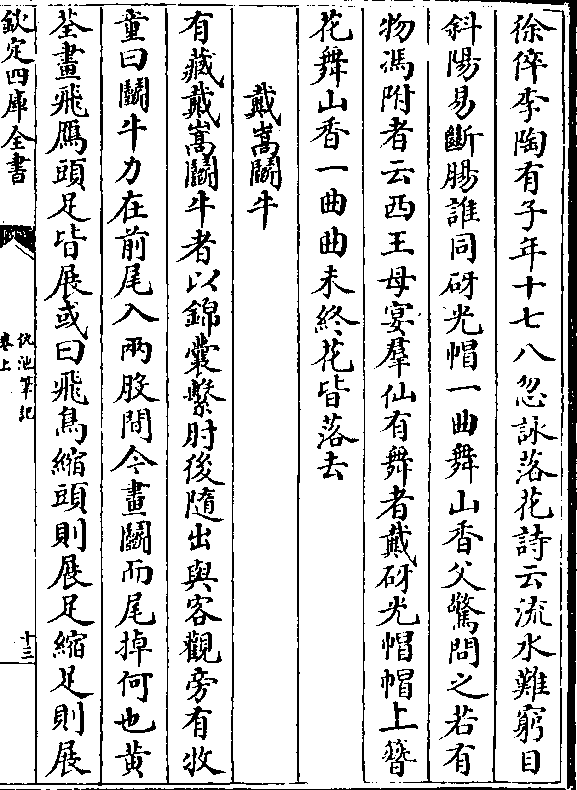 徐倅李陶有子年十七八忽詠落花詩云流水難窮目
斜陽易斷腸誰同砑光帽一曲舞山香父驚問之若有
物馮附者云西王母宴羣仙有舞者戴砑光帽帽上簪
花舞山香一曲曲未終花皆落去
戴嵩鬭牛
有藏戴嵩鬭牛者以錦囊繫肘後隨出與客觀旁有牧
童曰鬭牛力在前尾入兩股間今畫鬭而尾掉何也黄
荃畫飛鴈頭足皆展或曰飛鳥縮頭則展足縮足則展
欽定四庫全書
仇池筆記
卷上
十三